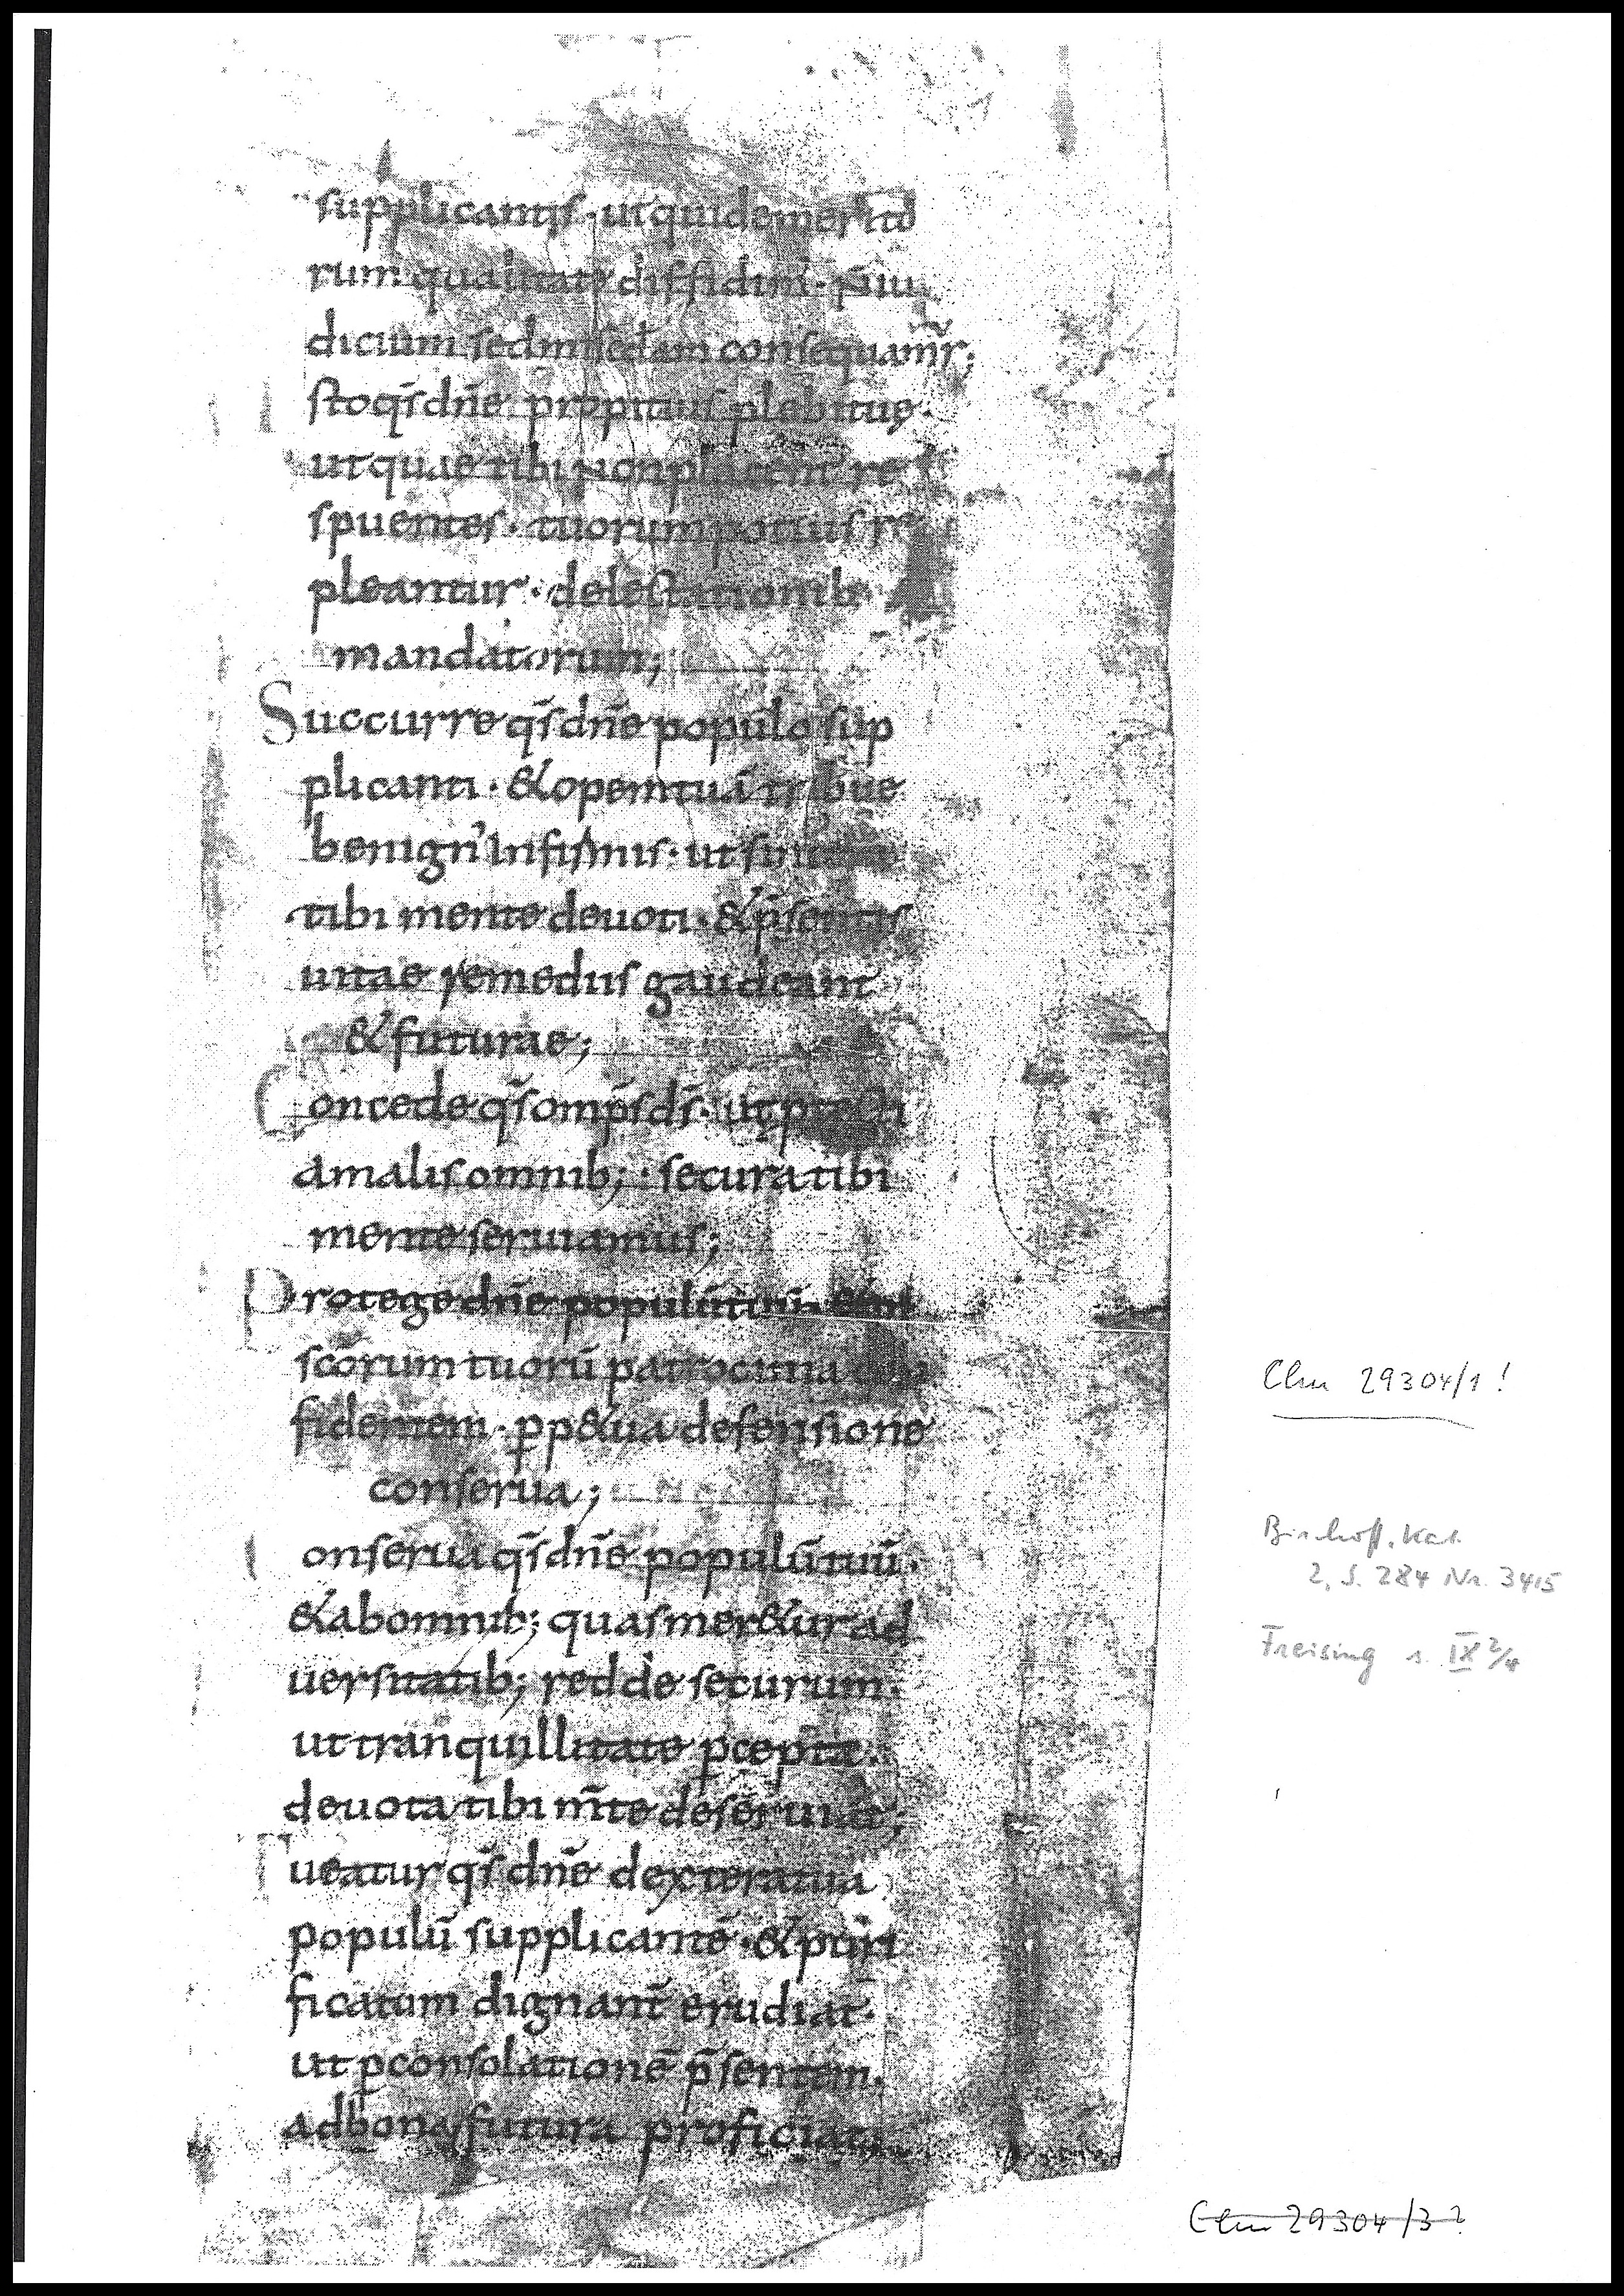 supplicantis · ut qui de merito
rum qualitate diffidim̄ · n̄ iu
dicium sed misc̄dam consequam̄r;
sto qs̄ dn̄e propitius plebi tue ·
ut quae tibi non placent re
spuentes · tuorum potius re
pleantur · delectationib
mandatorum;
Succurre qs̄ dn̄e populo sup
plicanti · & opem tuā tribue
benign' Infirmis · ut
tibi mente deuoti · & p̄sentis
uitae remediis gaudeant
& futurae;
Concede qs̄ omp̄s ds̄ · ut
a malis omnib; · secura tibi
mente seruiamus;
Protege dn̄e populū tuū &
sc̄orum tuorū patrocinia
fidentem · ꝑp&ua defensione
conserua;
onserua qs̄ dn̄e populū tuū ·
& ab omnib; quas mer&ur ad
uersitatib; redde securum ·
ut tranquillitate ꝑcepta ·
deuota tibi m̄te deseruiat;
Tueatur qs̄ dn̄e dextera tua
populū supplicantē · & puri
ficatum dignant̄ erudiat ·
ut ꝑ consolationē p̄sentem ·
ad bona futura proficiat;
Clm 29304/1 !
Bischoff, Kat.
2, S. 284 Nr. 3415
Freising s. IX 2/4
Clm 29304/3 ?